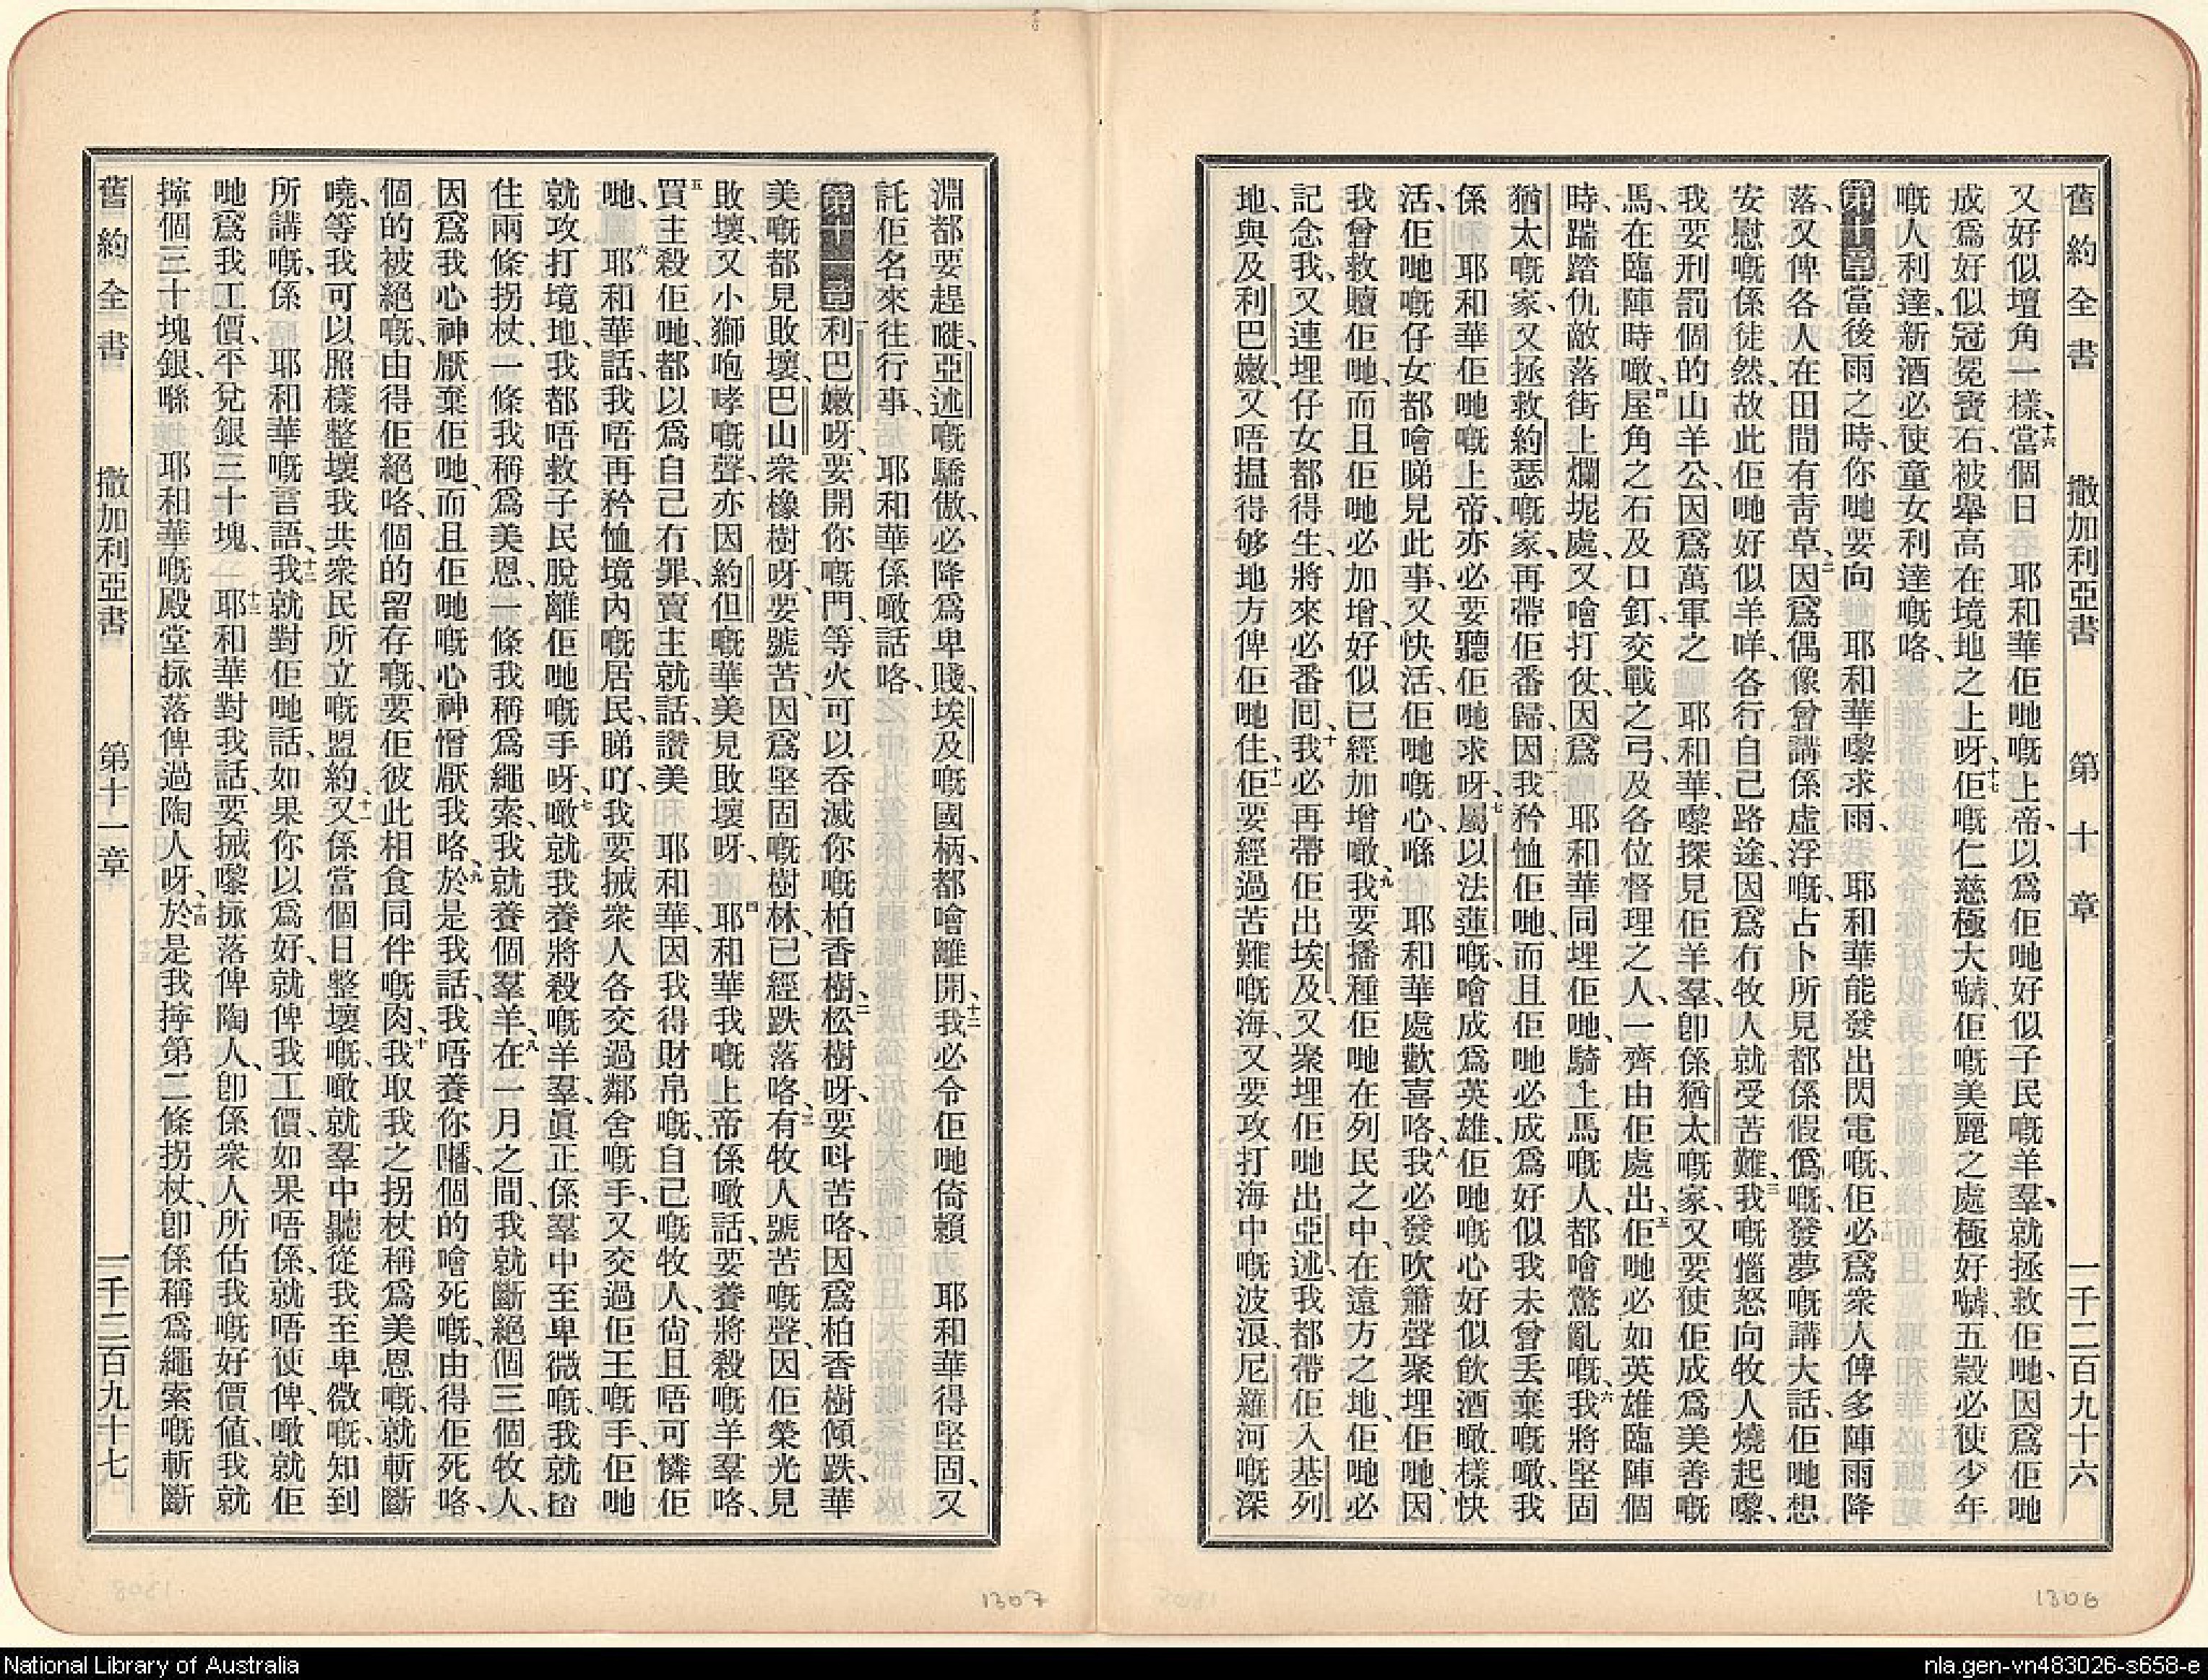 舊約全書 撒加利亞書 第十章 一千二百九十六
又好似壇角一樣、十六當個日 耶和華佢哋嘅上帝、以爲佢哋好似子民嘅羊羣、就拯救佢哋、因爲佢哋
成爲好似冠冕寶石、被舉高在境地之上呀、十七佢嘅仁慈極大嚹、佢嘅美麗之處極好嚹、五穀必使少年
嘅人利達、新酒必使童女利達嘅咯、
第十章一當後雨之時、你哋要向 耶和華嚟求雨、 耶和華能發出閃電嘅、佢必爲衆人俾多陣雨降
落、又俾各人在田間有青草、二因爲偶像曾講係虛浮嘅、占卜所見都係假僞嘅、發夢嘅講大話、佢哋想
安慰嘅係徒然、故此佢哋好似羊咩、各行自己路途、因爲冇牧人就受苦難、三我嘅惱怒向牧人燒起嚟、
我要刑罰個的山羊公、因爲萬軍之 耶和華、嚟探見佢羊羣、卽係猶太嘅家、又要使佢成爲美善嘅
馬、在臨陣時噉、四屋角之石及口釘、交戰之弓、及各位督理之人、一齊由佢處出、五佢哋必如英雄臨陣個
時、踹踏仇敵落街上爛坭處、又噲打仗、因爲 耶和華同埋佢哋、騎上馬嘅人、都噲驚亂嘅、六我將堅固
猶太嘅家、又拯救約瑟嘅家、再帶佢番歸、因我矜恤佢哋、而且佢哋必成爲好似我未曾丢棄嘅噉、我
係 耶和華佢哋嘅上帝、亦必要聽佢哋求呀、七屬以法蓮嘅、噲成爲英雄、佢哋嘅心好似飮酒噉樣快
活、佢哋嘅仔女都噲睇見此事、又快活、佢哋嘅心喺 耶和華處歡喜咯、八我必發吹簫聲聚埋佢哋、因
我曾救贖佢哋、而且佢哋必加增、好似已經加增噉、九我要播種佢哋在列民之中、在遠方之地、佢哋必
記念我、又連埋仔女都得生、將來必番囘、十我必再帶佢出埃及、又聚埋佢哋出亞述、我都帶佢入基列
地、與及利巴嫩、又唔搵得够地方俾佢哋住、十一佢要經過苦難嘅海、又要攻打海中嘅波浪、尼羅河嘅深
淵都要趕嘥、亞述嘅驕傲、必降爲卑賤、埃及嘅國柄、都噲離開、十二我必令佢哋倚賴 耶和華得堅固、又
託佢名來往行事、 耶和華係噉話咯、
第十一章一利巴嫩呀、要開你嘅門、等火可以吞滅你嘅柏香樹、二松樹呀、要呌苦咯、因爲柏香樹傾跌、華
美嘅都見敗壞、巴山衆橡樹呀、要號苦、因爲堅固嘅樹林、已經跌落咯、三有牧人號苦嘅聲、因佢榮光見
敗壞、又小獅咆哮嘅聲、亦因約但嘅華美見敗壞呀、四 耶和華我嘅上帝係噉話、要養將殺嘅羊羣咯、
五買主殺佢哋、都以爲自己冇罪、賣主就話、讚美 耶和華、因我得財帛嘅、自己嘅牧人、尙且唔可憐佢
哋、六 耶和華話、我唔再矜恤境內嘅居民、睇吖、我要搣衆人各交過鄰舍嘅手、又交過佢王嘅手、佢哋
就攻打境地、我都唔救子民脫離佢哋嘅手呀、七噉就我養將殺嘅羊羣、眞正係羣中至卑微嘅、我就揸
住兩條拐杖、一條我稱爲美恩、一條我稱爲繩索、我就養個羣羊、八在一月之間、我就斷絕個三個牧人、
因爲我心神厭棄佢哋、而且佢哋嘅心神憎厭我咯、九於是我話、我唔養你嚹、個的噲死嘅、由得佢死咯、
個的被絕嘅、由得佢絕咯、個的留存嘅、要佢彼此相食同伴嘅肉、十我取我之拐杖稱爲美恩嘅、就斬斷
嘵、等我可以照樣整壞我共衆民所立嘅盟約、十一又係當個日整壞嘅、噉就羣中聽從我至卑微嘅、知到
所講嘅、係 耶和華嘅言語、十二我就對佢哋話、如果你以爲好、就俾我工價、如果唔係、就唔使俾、噉就佢
哋爲我工價、平兌銀三十塊、十三 耶和華對我話、要搣嚟㧒落俾陶人、卽係衆人所估我嘅好價值、我就
擰個三十塊銀、喺耶和華嘅殿堂㧒落俾過陶人呀、十四於是我擰第二條拐杖、卽係稱爲繩索嘅斬斷
舊約全書 撒加利亞書 第十一章 一千二百九十七
1307
1306
National Library of Australia
nla.gen-vn483026-s658-e